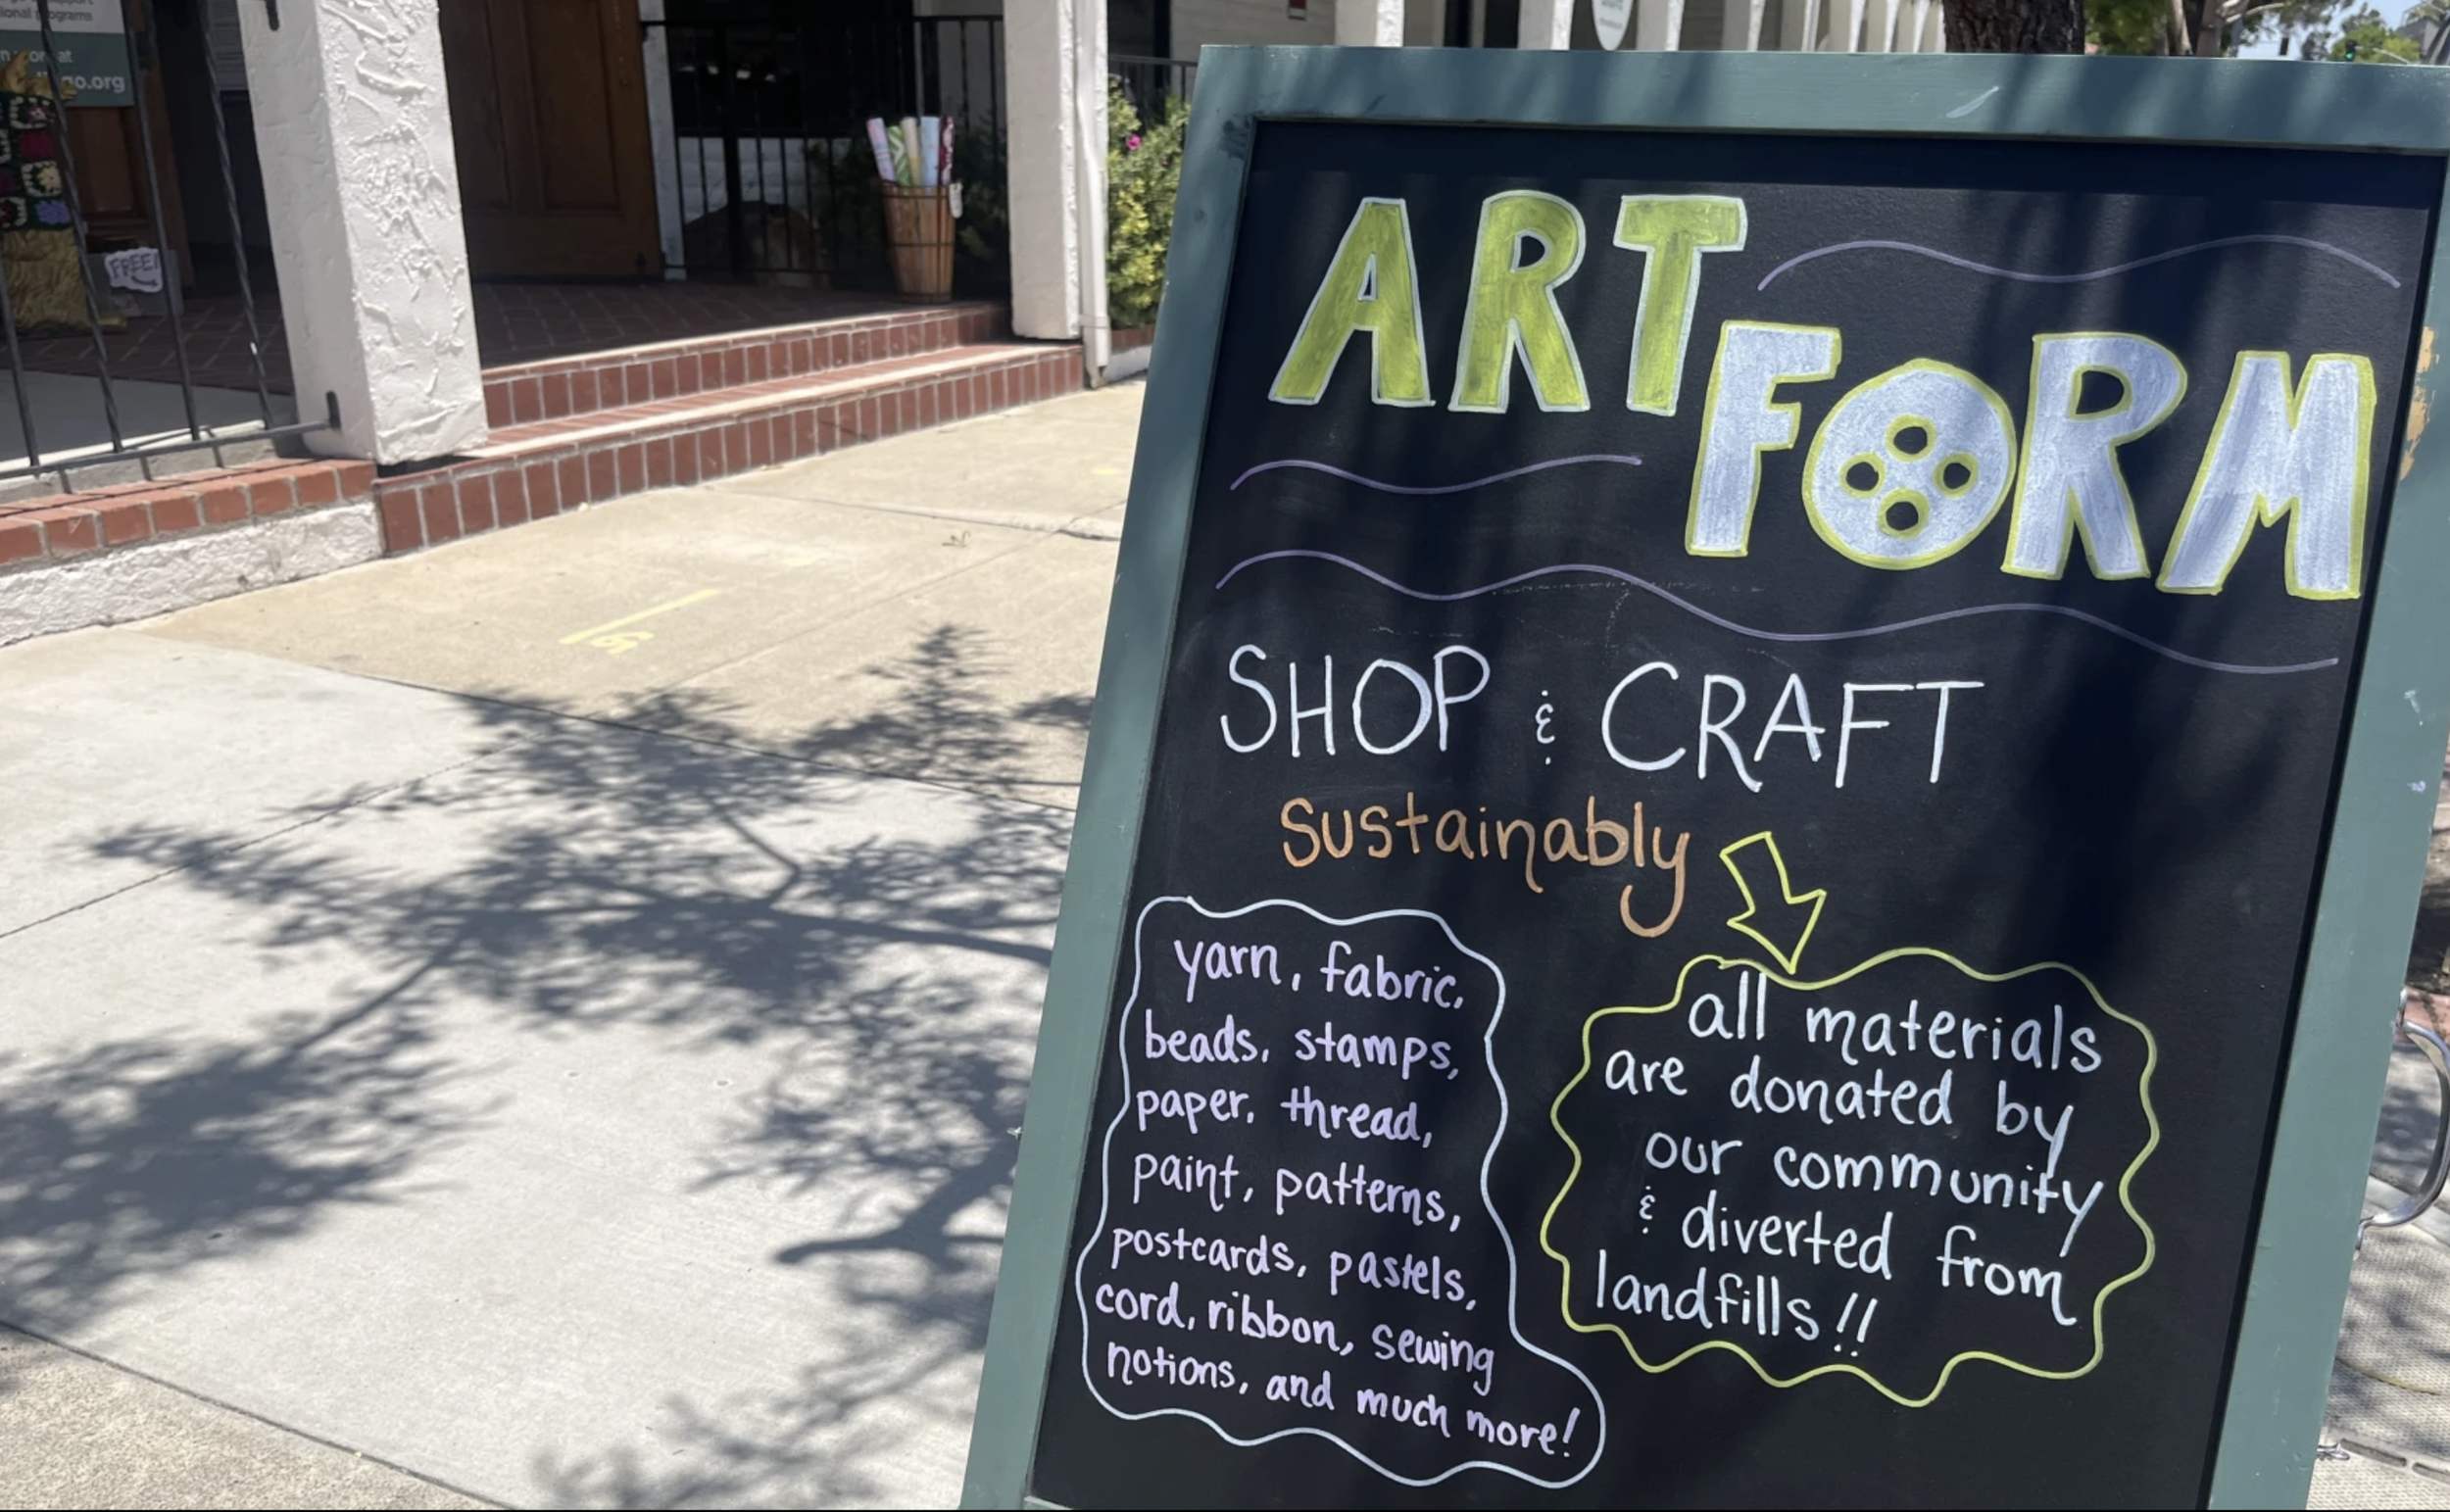 programs
at
go.org
FREE!
ART
FORM
SHOP & CRAFT
sustainably
yarn, fabric,
beads, stamps,
paper, thread,
paint, patterns,
postcards, pastels,
cord, ribbon, sewing
notions, and much more!
all materials
are donated by
our community
& diverted from
landfills!!